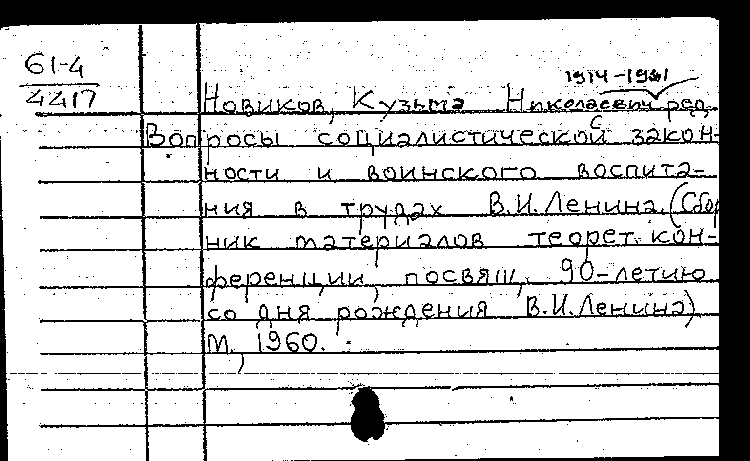 61-4
4417
1914-1981
Новиков, Кузьма Николаевич ред.
Вопросы социалистической закон-
ности и воинского воспита-
ния в трудах В.И.Ленина. (Сбор
ник материалов теорет. кон-
ференции, посвящ. 90-летию
со дня рождения В.И.Ленина)
М., 1960.